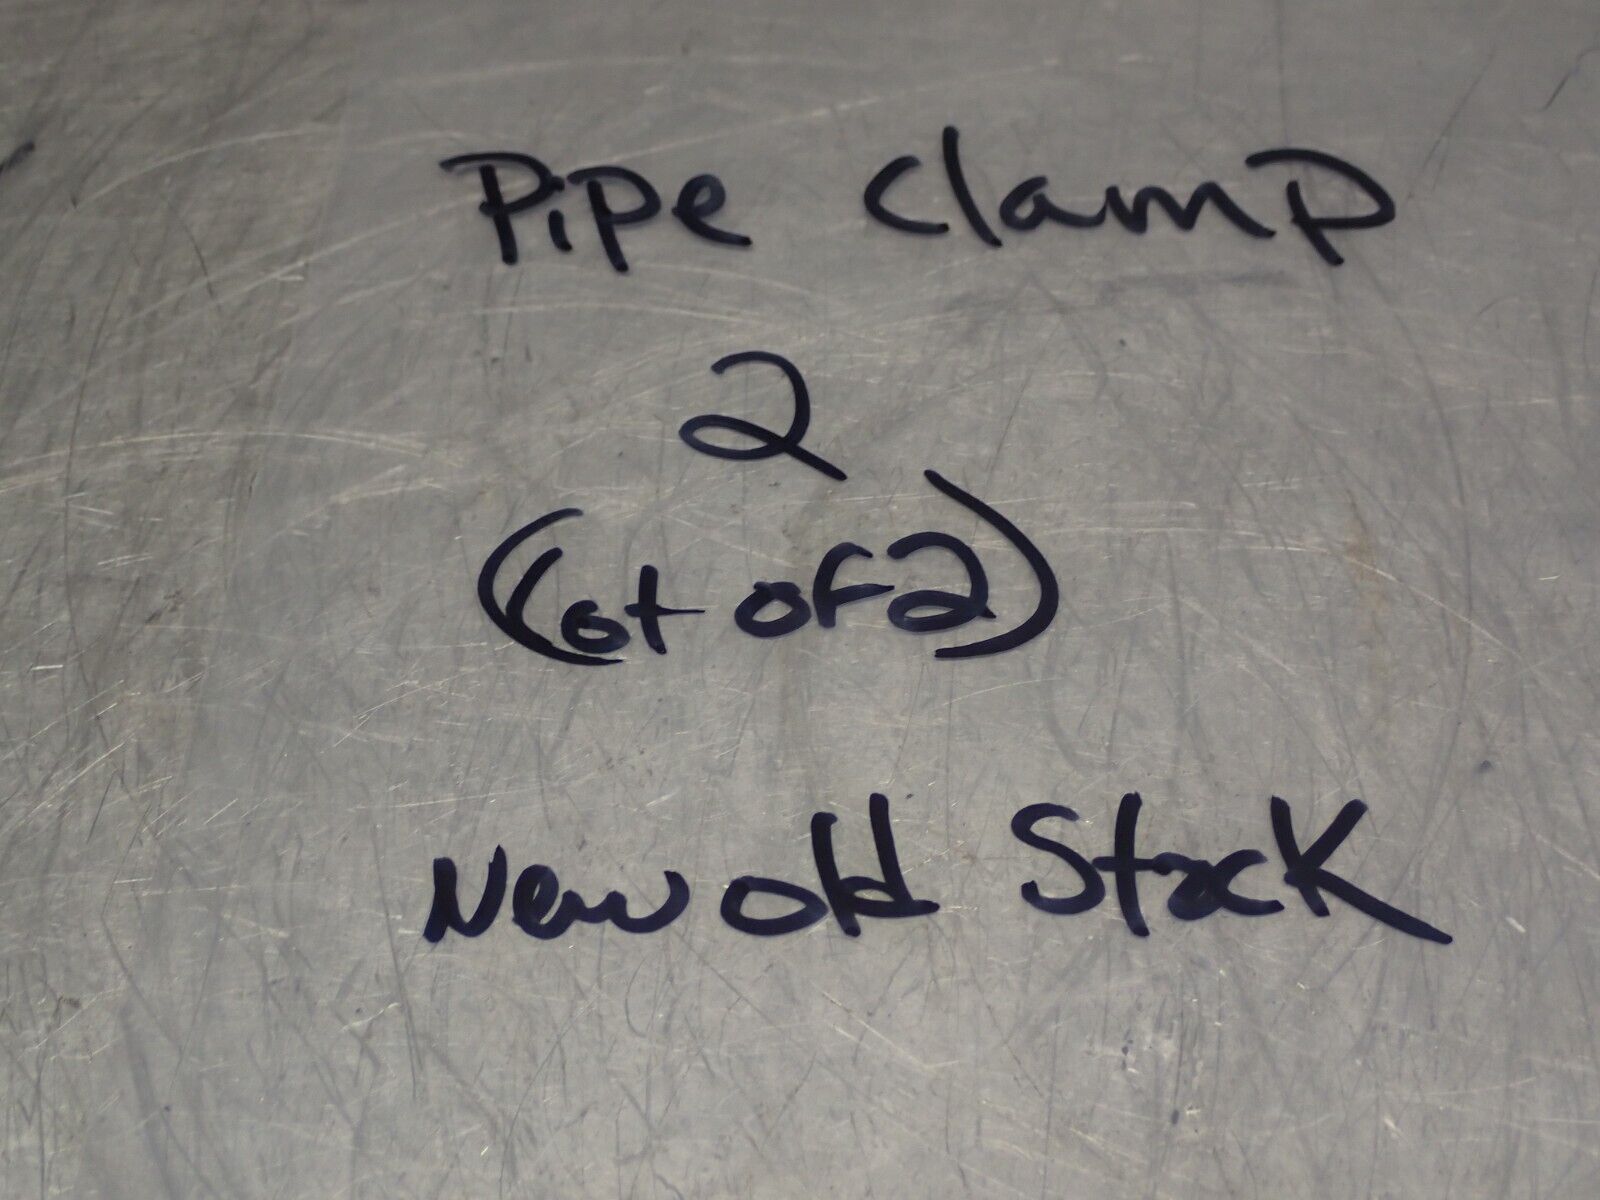 Pipe Clamp
2
(Lot of 2)
New old Stock